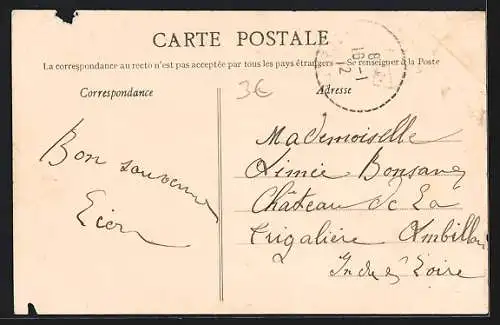 CARTE POSTALE
La correspondance au recto n'est pas acceptée par tous les pays étrangers — Se renseigner à la Poste
Correspondance
Adresse
3€
8
16-1
12
Bon souvenir
Mademoiselle
Aimée
Château de La
Trigalière Ambillou
Indre & Loire